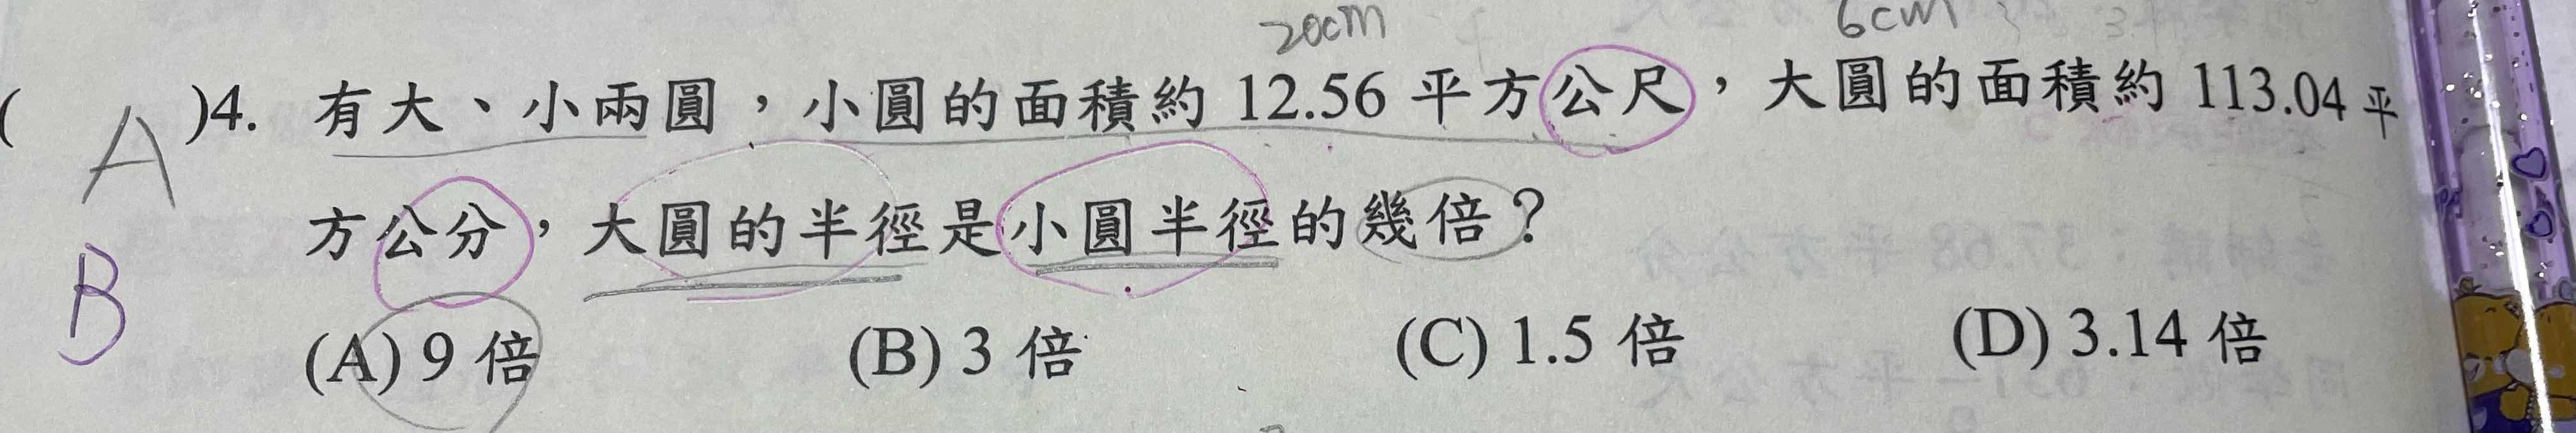 20cm 6cm
( A )4. 有大、小兩圓，小圓的面積約 12.56 平方公尺，大圓的面積約 113.04 平
方公分，大圓的半徑是小圓半徑的幾倍？
B
(A) 9 倍 (B) 3 倍 (C) 1.5 倍 (D) 3.14 倍